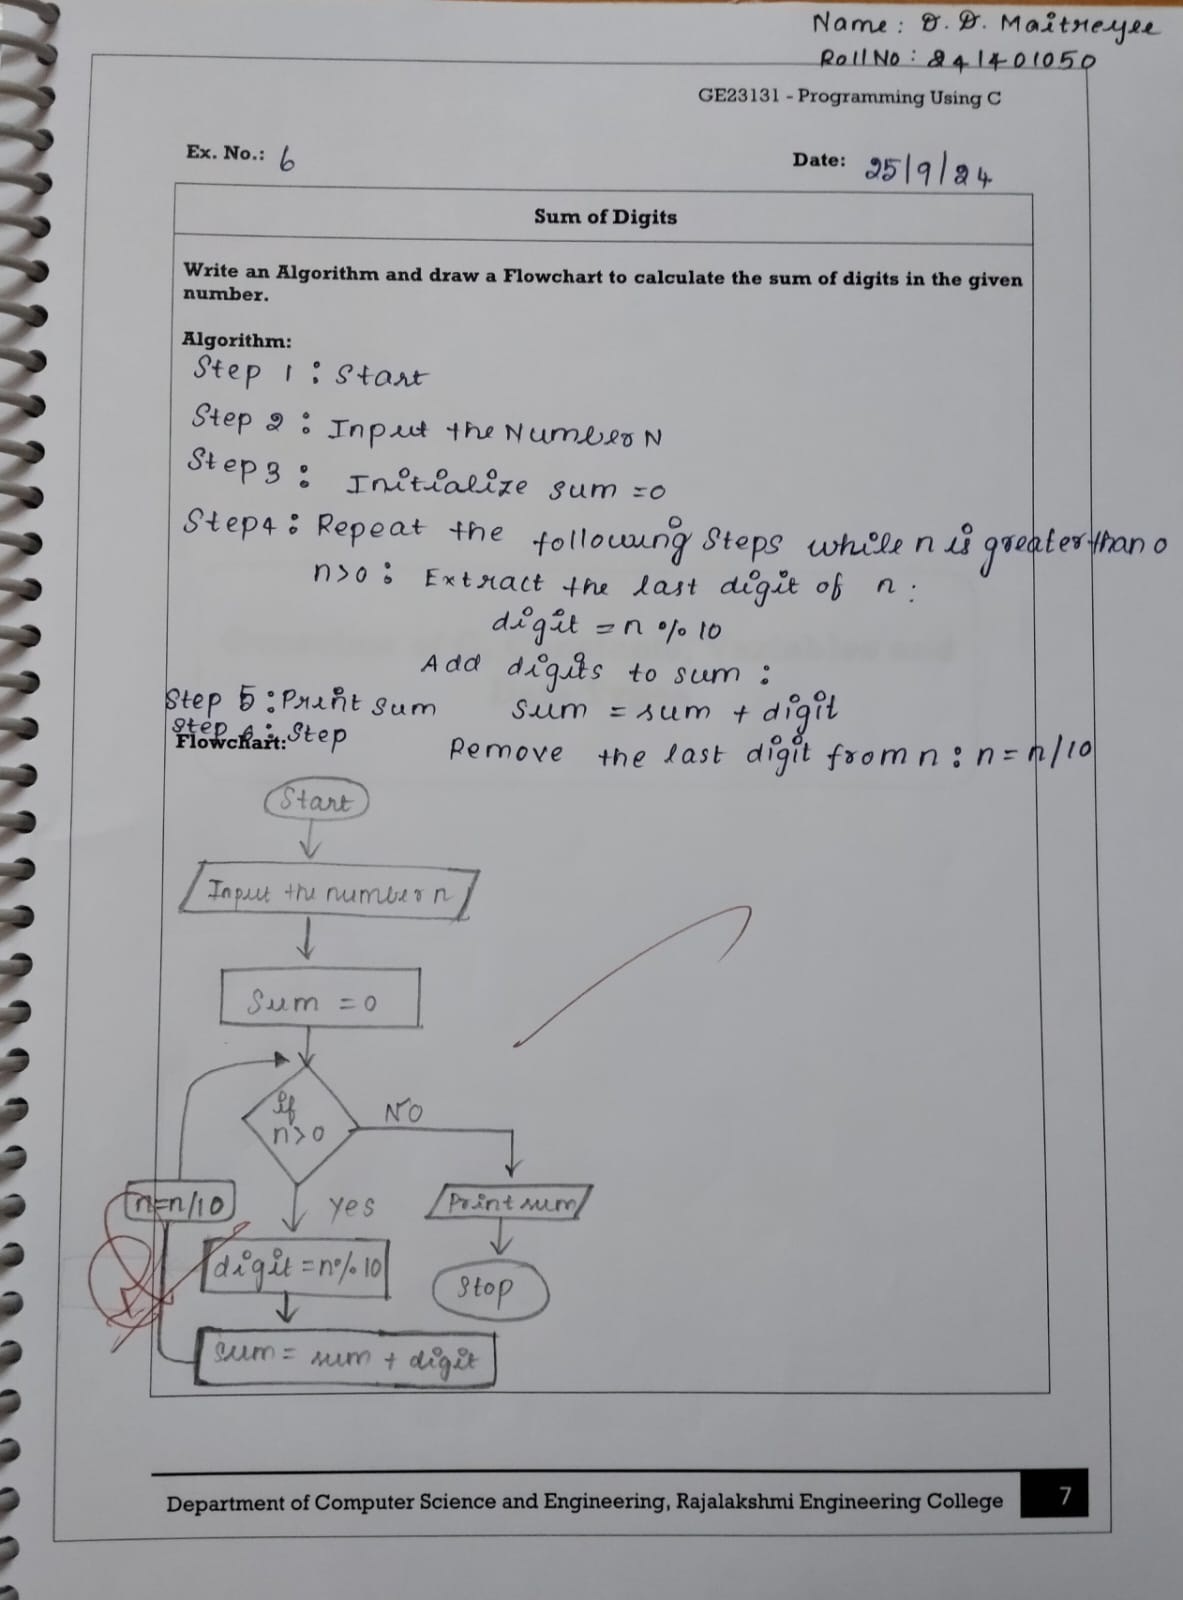 Name : D. D. Maitreyee
Roll No : 241401050
GE23131 - Programming Using C
Ex. No.: 6
Date: 25/9/24
Sum of Digits
Write an Algorithm and draw a Flowchart to calculate the sum of digits in the given
number.
Algorithm:
Step 1 : Start
Step 2 : Input the Number N
Step 3 : Initialize sum = 0
Step 4 : Repeat the following Steps while n is greater than 0
n>0 : Extract the last digit of n :
digit = n % 10
Add digits to sum :
Step 5 : Print sum
sum = sum + digit
Step 6 : Step
Flowchart:
Remove the last digit from n : n = n/10
Start
Input the number n
Sum = 0
if
n>0
NO
n=n/10
Yes
Print sum
digit = n % 10
Stop
sum = sum + digit
Department of Computer Science and Engineering, Rajalakshmi Engineering College
7